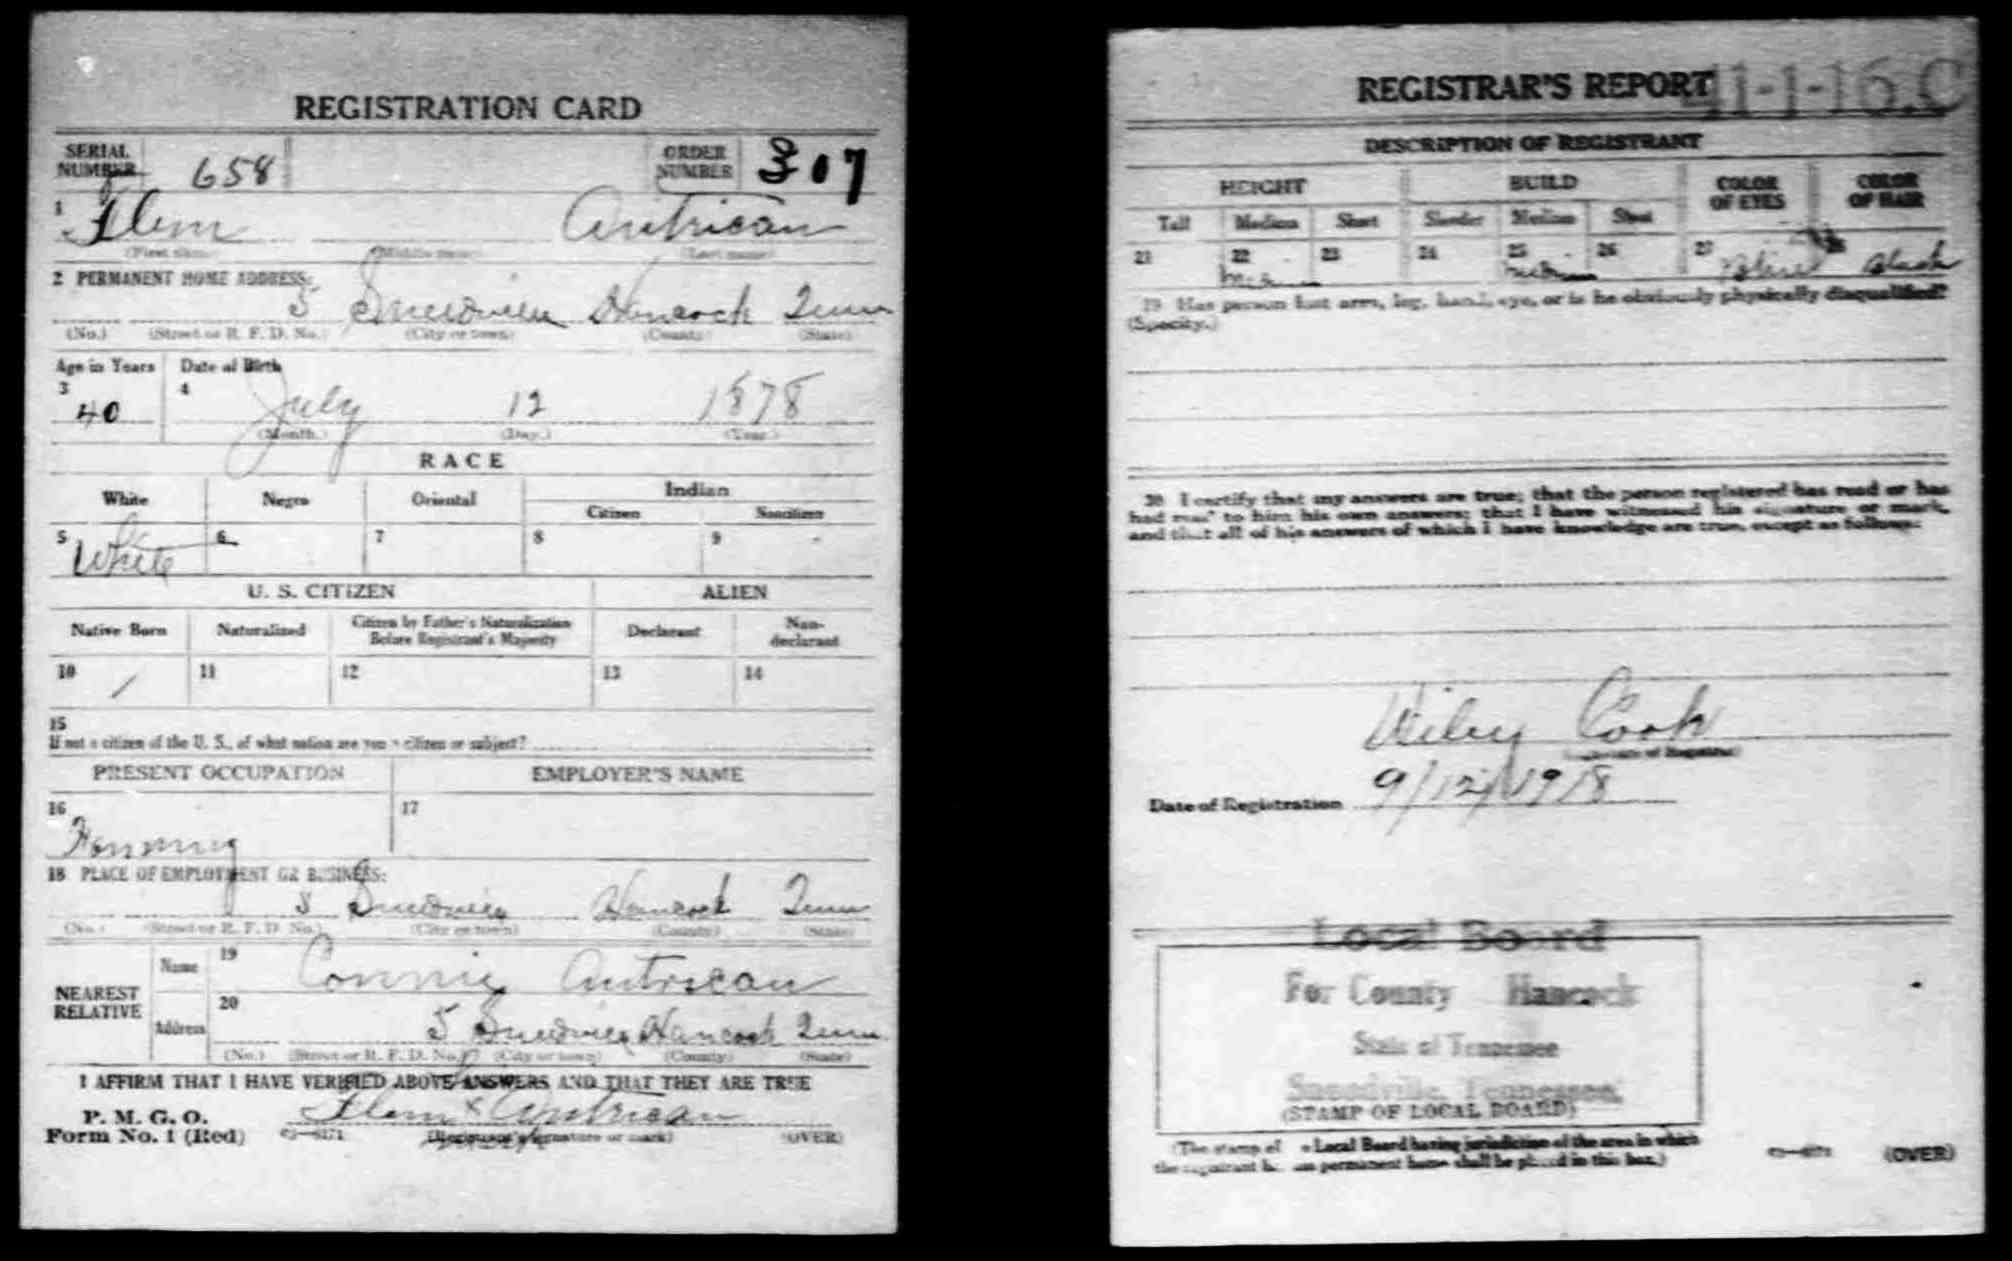 REGISTRATION CARD
SERIAL NUMBER 658 ORDER NUMBER 307
1 Flem Autrican
(First name) (Middle name) (Last name)
2 PERMANENT HOME ADDRESS:
5 Sneedville Hancock Tenn
(No.) (Street or R. F. D. No.) (City or town) (County) (State)
Age in Years Date of Birth
3 40 4 July 12 1878
(Month.) (Day.) (Year.)
RACE
White Negro Oriental Indian
Citizen Noncitizen
5 White 6 7 8 9
U. S. CITIZEN ALIEN
Native Born Naturalized Citizen by Father's Naturalization Before Registrant's Majority Declarant Non-declarant
10 / 11 12 13 14
15
If not a citizen of the U. S., of what nation are you a citizen or subject?
PRESENT OCCUPATION EMPLOYER'S NAME
16 Farming 17
18 PLACE OF EMPLOYMENT OR BUSINESS:
5 Sneedville Hancock Tenn
(No.) (Street or R. F. D. No.) (City or town) (County) (State)
NEAREST RELATIVE Name 19 Connie Autrican
Address 20 5 Sneedville Hancock Tenn
(No.) (Street or R. F. D. No.) (City or town) (County) (State)
I AFFIRM THAT I HAVE VERIFIED ABOVE ANSWERS AND THAT THEY ARE TRUE
P. M. G. O.
Form No. 1 (Red) Flem x Autrican
(Registrant's signature or mark) (OVER)
REGISTRAR'S REPORT 41-1-16.C
DESCRIPTION OF REGISTRANT
HEIGHT BUILD COLOR OF EYES COLOR OF HAIR
Tall Medium Short Slender Medium Stout
21 22 Medium 23 24 25 Medium 26 27 Blue 28 Black
29 Has person lost arm, leg, hand, eye, or is he obviously physically disqualified?
(Specify.)
30 I certify that my answers are true; that the person registered has read or has
had read to him his own answers; that I have witnessed his signature or mark,
and that all of his answers of which I have knowledge are true, except as follows:
Wiley Cook
(Signature of Registrar)
Date of Registration 9/12/1918
Local Board
For County Hancock
State of Tennessee
Sneedville, Tennessee.
(STAMP OF LOCAL BOARD)
(The stamp of the Local Board having jurisdiction of the area in which
the registrant has his permanent home shall be placed in this box.)
(OVER)